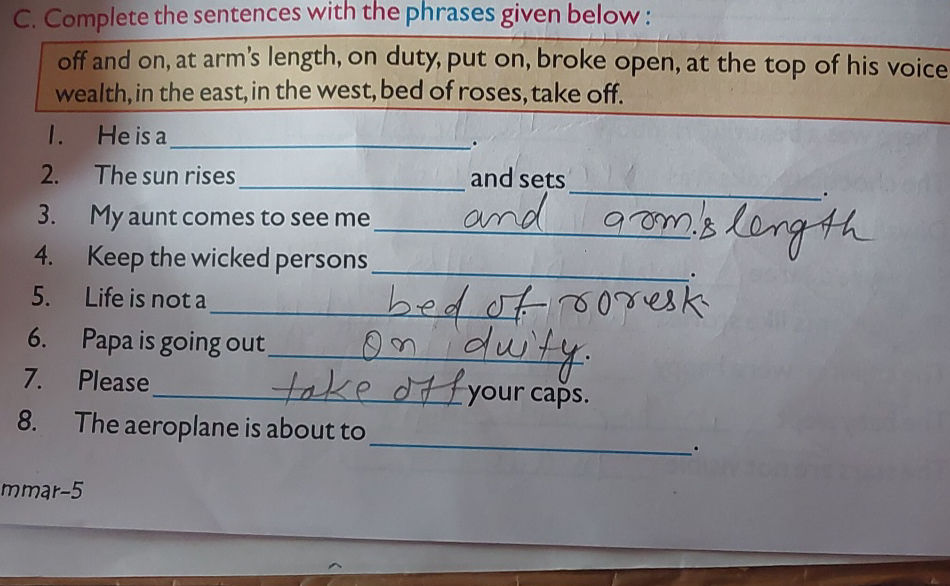 C. Complete the sentences with the phrases given below :
off and on, at arm's length, on duty, put on, broke open, at the top of his voice
wealth, in the east, in the west, bed of roses, take off.
1. He is a ____.
2. The sun rises ____ and sets ____.
3. My aunt comes to see me and arm's length
4. Keep the wicked persons ____.
5. Life is not a bed of roresk
6. Papa is going out On duity.
7. Please take off your caps.
8. The aeroplane is about to ____.
mmar-5